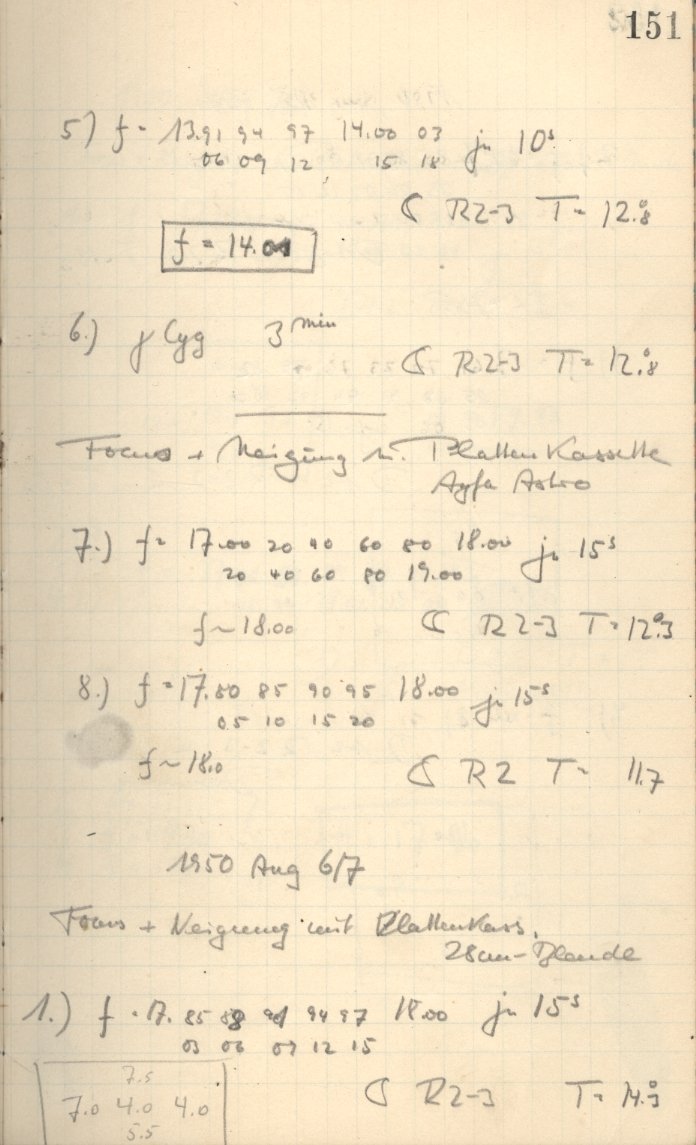 151
5) f = 13.91 94 97 14.00 03 je 10s
06 09 12 15 18
R2-3 T = 12.°8
f = 14.01
6.) γ Cyg 3 min
R2-3 T = 12.°8
Focus + Neigung m. Plattenkassette
Agfa Astro
7.) f = 17.00 20 40 60 80 18.00 je 15s
20 40 60 80 19.00
f ~ 18.00
R 2-3 T = 12.°3
8.) f = 17.80 85 90 95 18.00 je 15s
05 10 15 20
f ~ 18.0
R2 T = 11.7
1950 Aug 6/7
Focus + Neigung mit Plattenkass.
28cm-Blende
1.) f = 17.85 88 91 94 97 18.00 je 15s
03 06 09 12 15
R2-3 T =
7.5
7.0 4.0 4.0
5.5